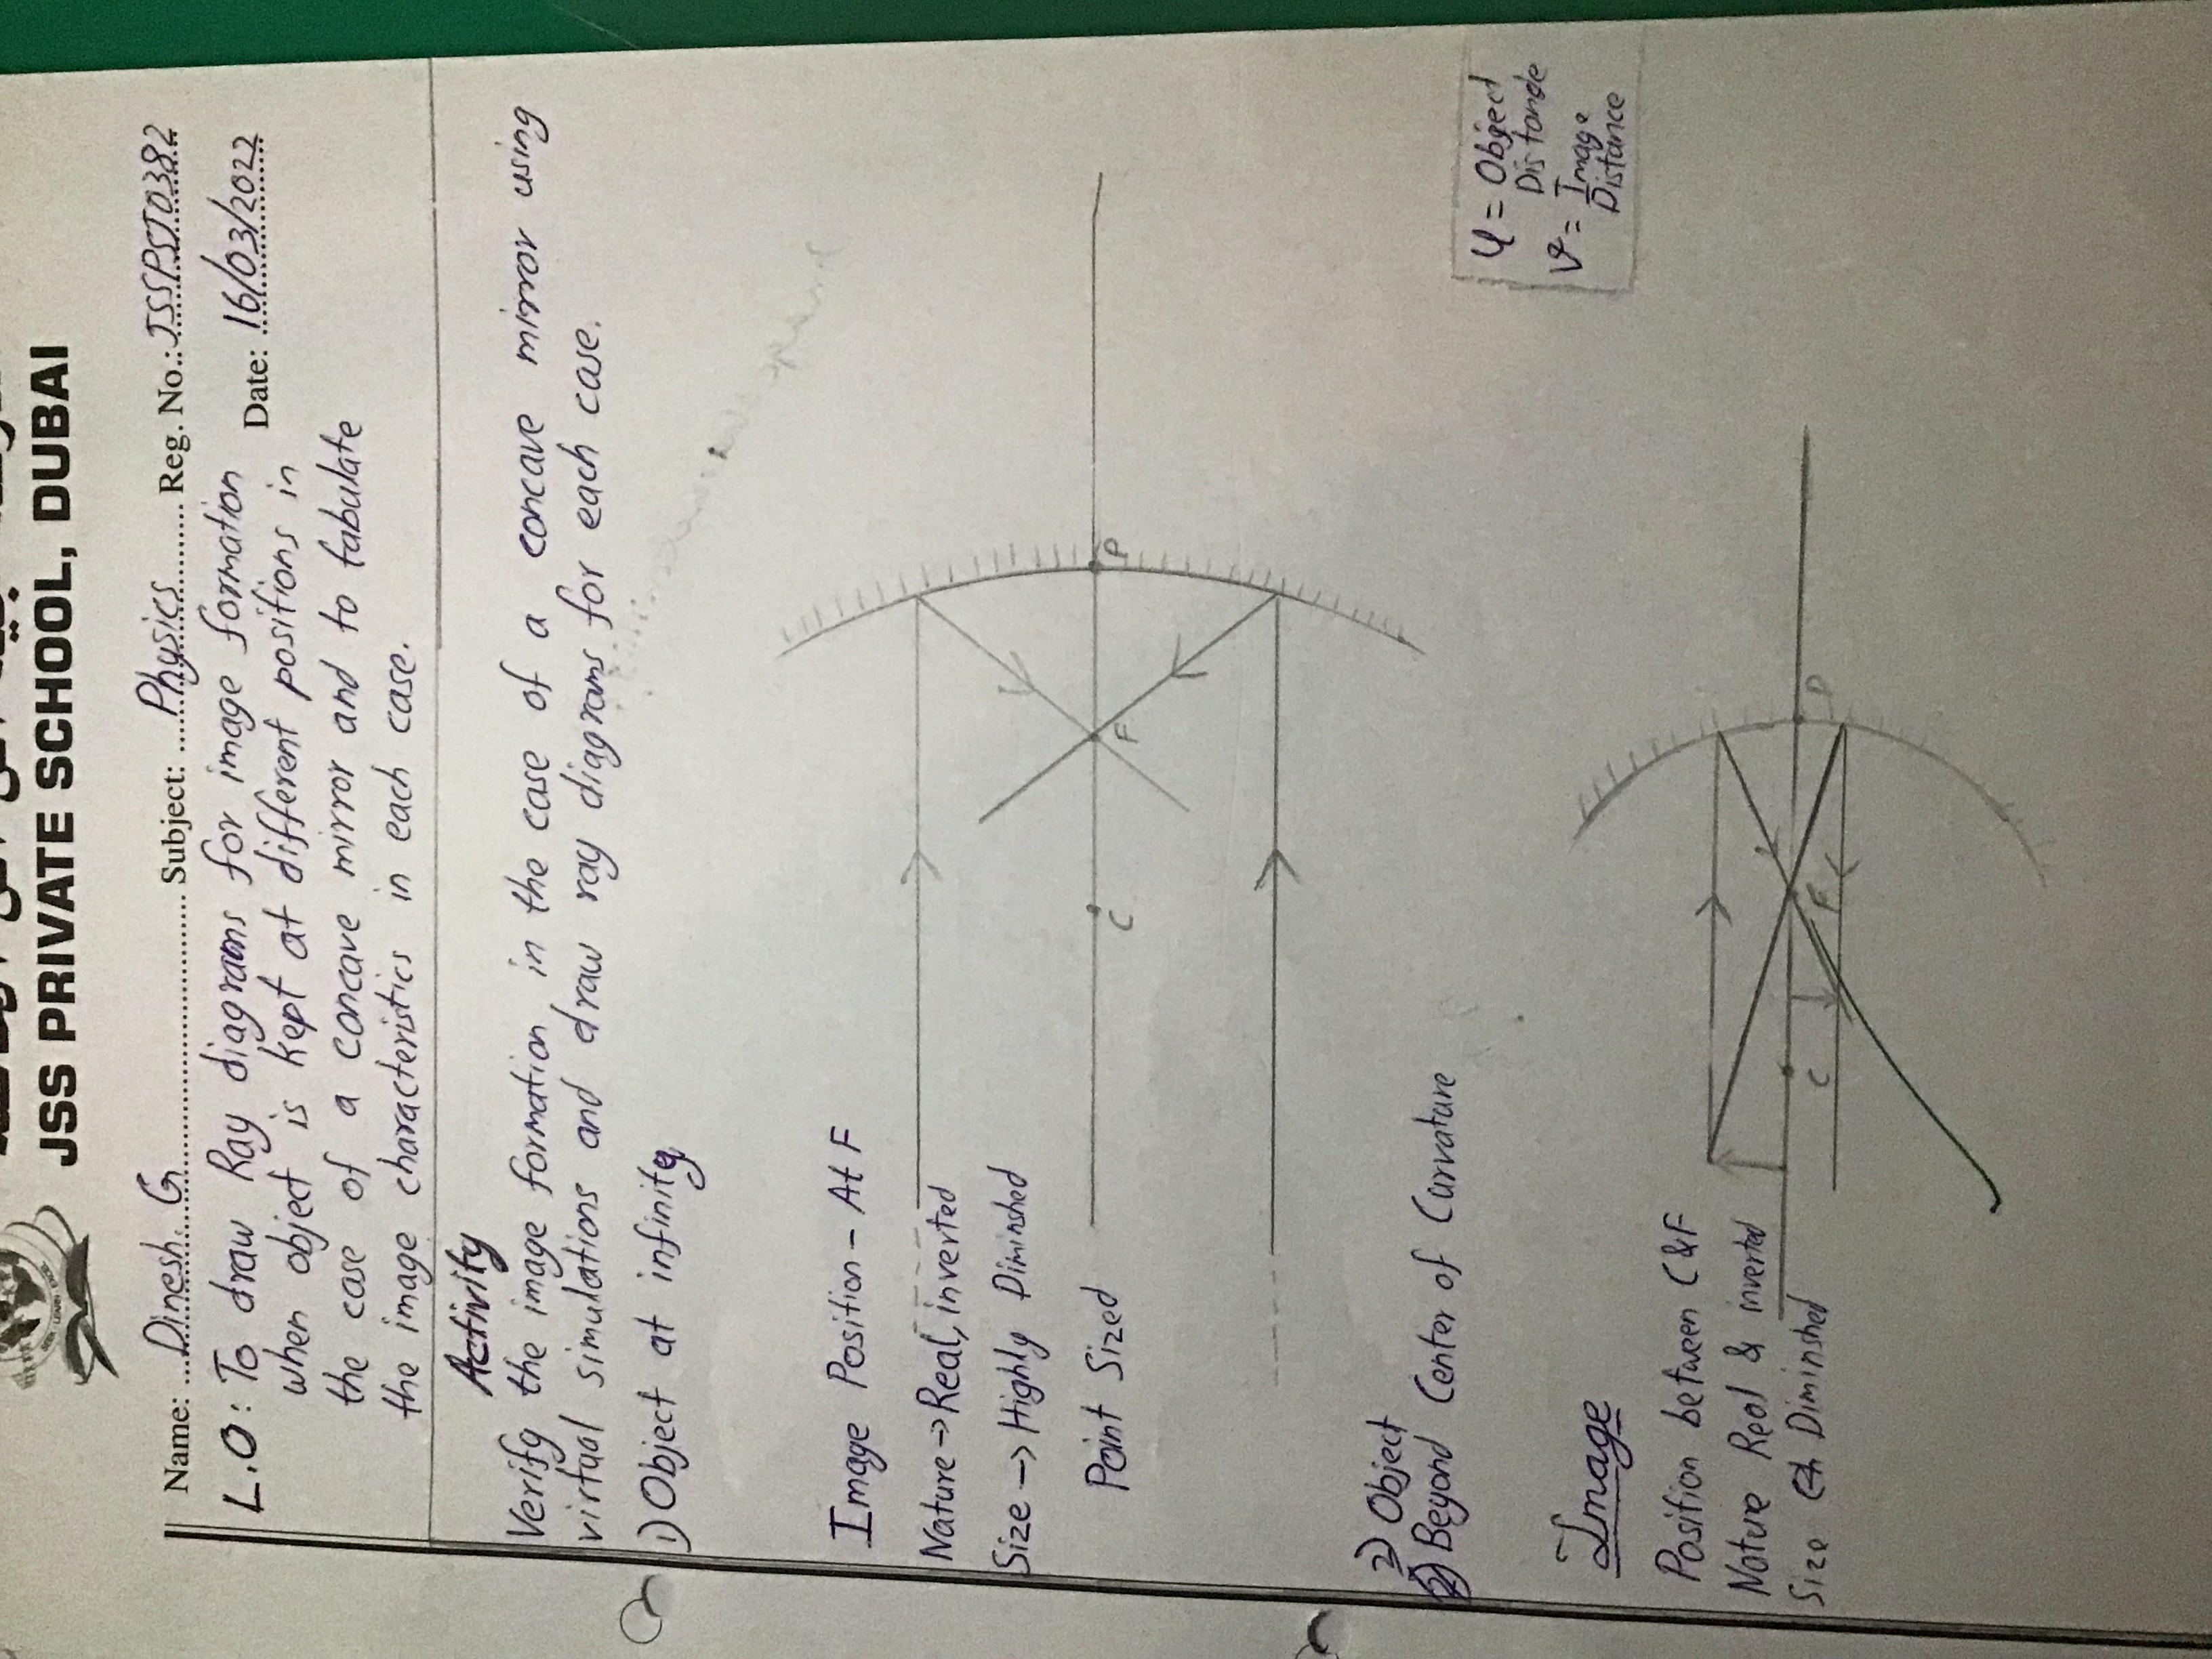 SEEK LEARN EXCEL
JSS PRIVATE SCHOOL, DUBAI
Name: Dinesh. G Subject: Physics Reg. No.: JSSPSJ0382
Date: 16/03/2022
L.O: To draw Ray diagrams for image formation
when object is kept at different positions in
the case of a concave mirror and to tabulate
the image characteristics in each case.
Activity
Verify the image formation in the case of a concave mirror using
virtual simulations and draw ray diagrams for each case.
1) Object at infinity
Image Position - At F
Nature → Real, inverted
Size → Highly Diminshed
Point Sized
C F P
2) Object
2) Beyond Center of Curvature
u = Object
Distance
v = Image
Distance
Image
Position between C & F
Nature Real & inverted
Size Diminshed
C F P